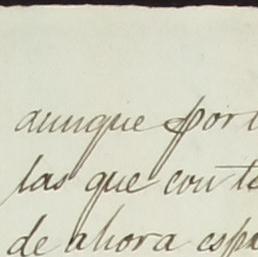 aunque por
las que con te
de ahora espe